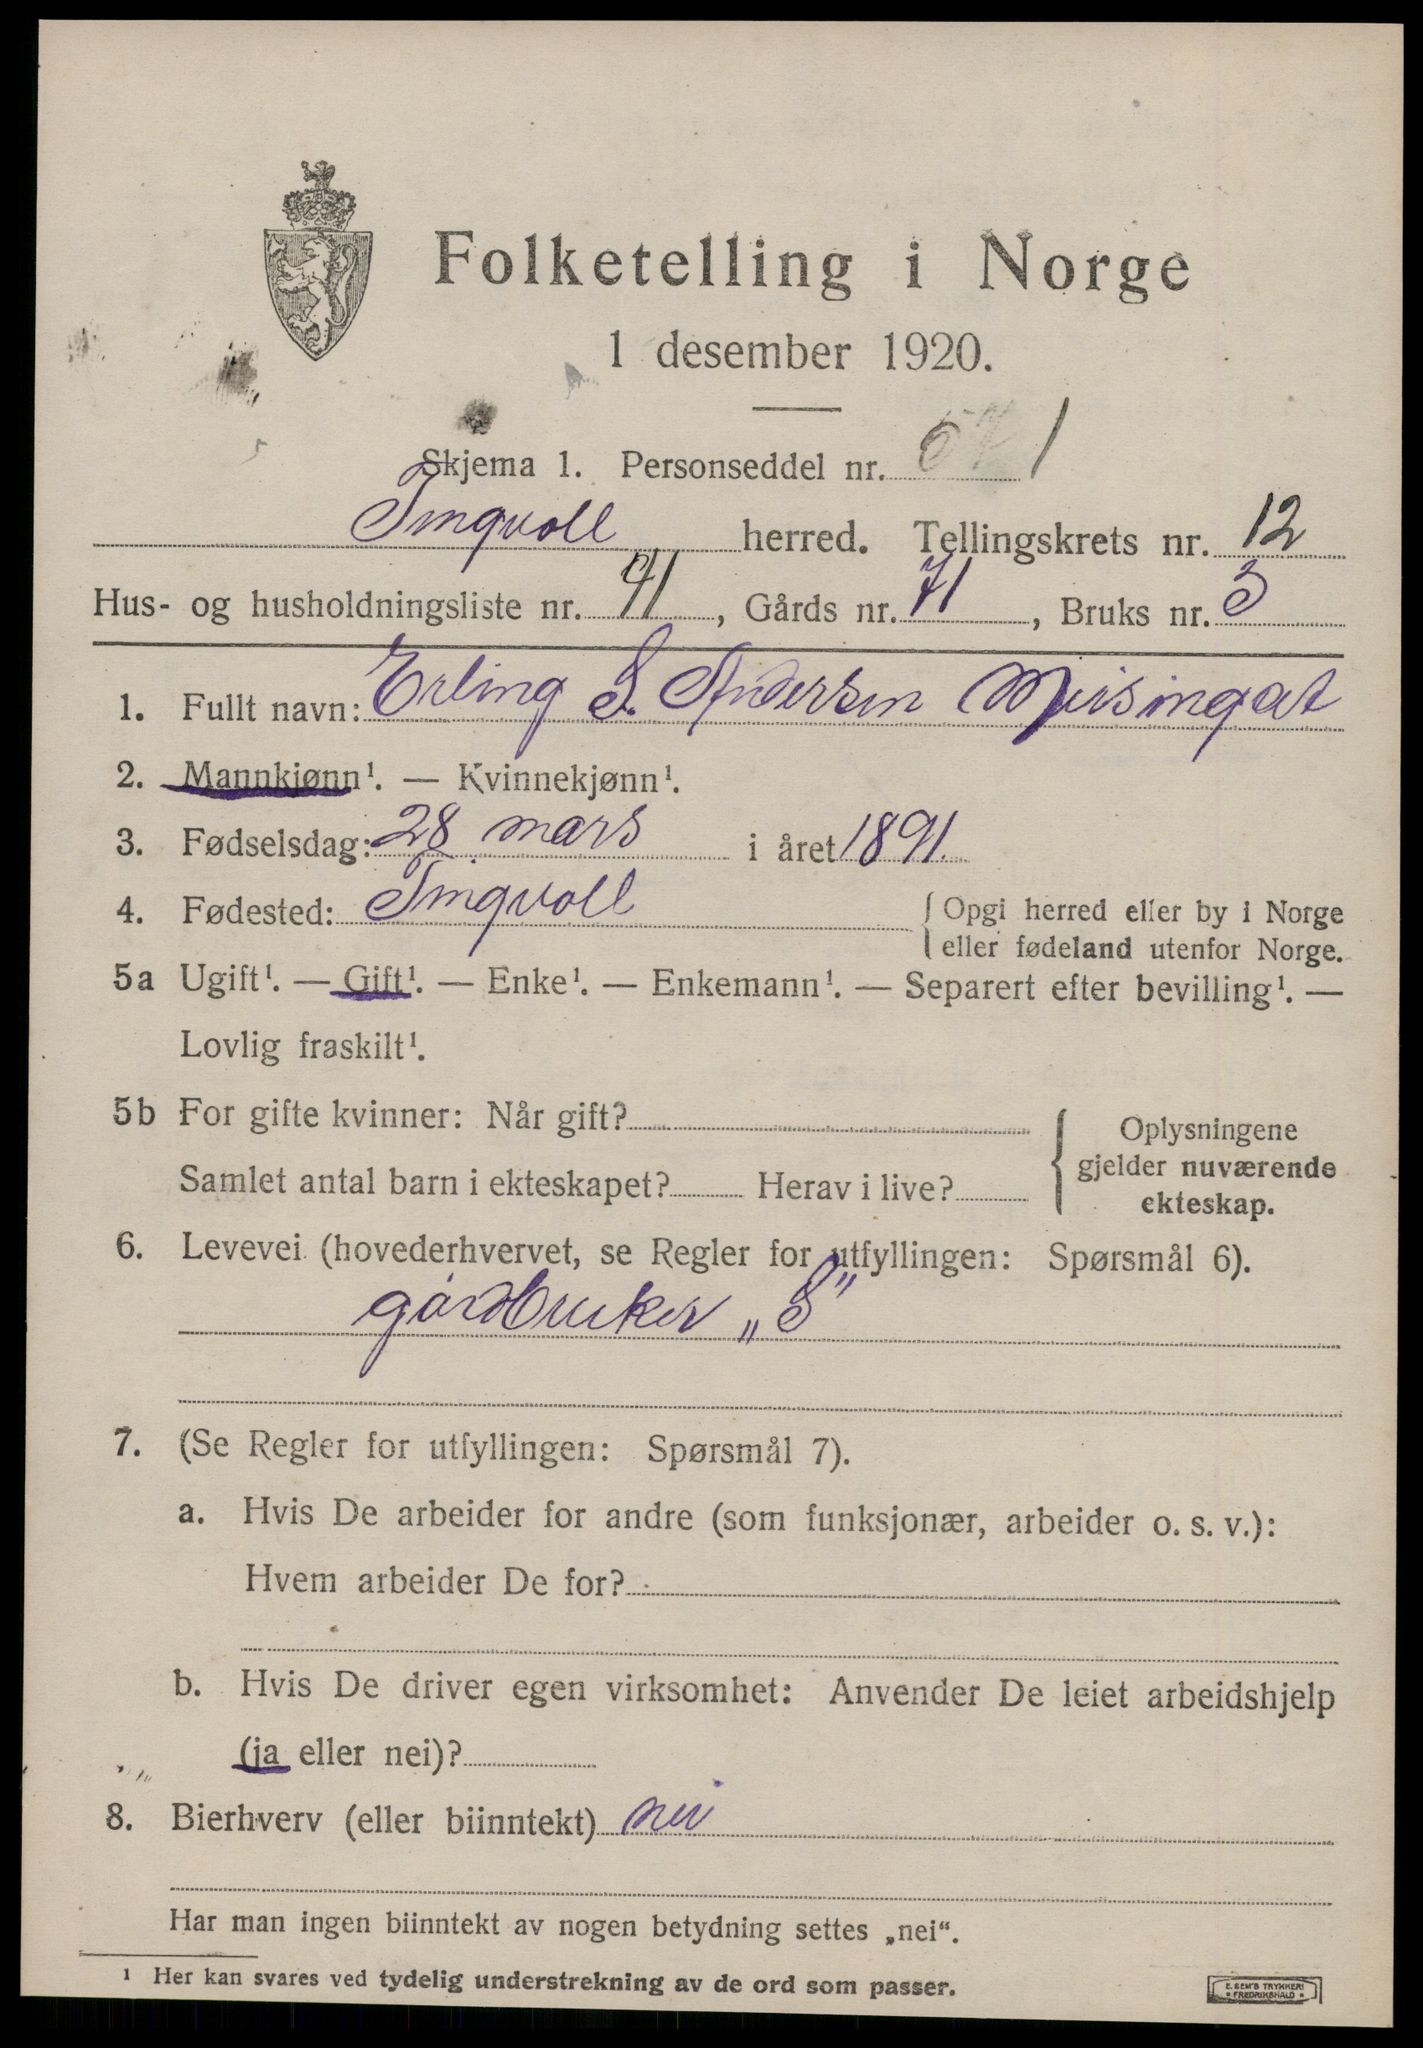 Folketelling i Norge
1 desember 1920.
Skjema 1. Personseddel nr. 1
Tingvoll herred. Tellingskrets nr. 12
Hus- og husholdningsliste nr. 41, Gårds nr. 71, Bruks nr. 3
1. Fullt navn: Erling S. Andersen Meisingset
2. Mannkjønn¹. — Kvinnekjønn¹.
3. Fødselsdag: 28 mars i året 1891.
4. Fødested: Tingvoll { Opgi herred eller by i Norge
eller fødeland utenfor Norge.
5a Ugift¹. — Gift¹. — Enke¹. — Enkemann¹. — Separert efter bevilling¹. —
Lovlig fraskilt¹.
5b For gifte kvinner: Når gift? { Oplysningene
gjelder nuværende
Samlet antal barn i ekteskapet? Herav i live? ekteskap.
6. Levevei (hovederhvervet, se Regler for utfyllingen: Spørsmål 6).
gårdbruker „S"
7. (Se Regler for utfyllingen: Spørsmål 7).
a. Hvis De arbeider for andre (som funksjonær, arbeider o. s. v.):
Hvem arbeider De for?
b. Hvis De driver egen virksomhet: Anvender De leiet arbeidshjelp
(ja eller nei)?
8. Bierhverv (eller biinntekt) nei
Har man ingen biinntekt av nogen betydning settes „nei“.
¹ Her kan svares ved tydelig understrekning av de ord som passer.
E. SEM'S TRYKKERI
FREDRIKSHALD